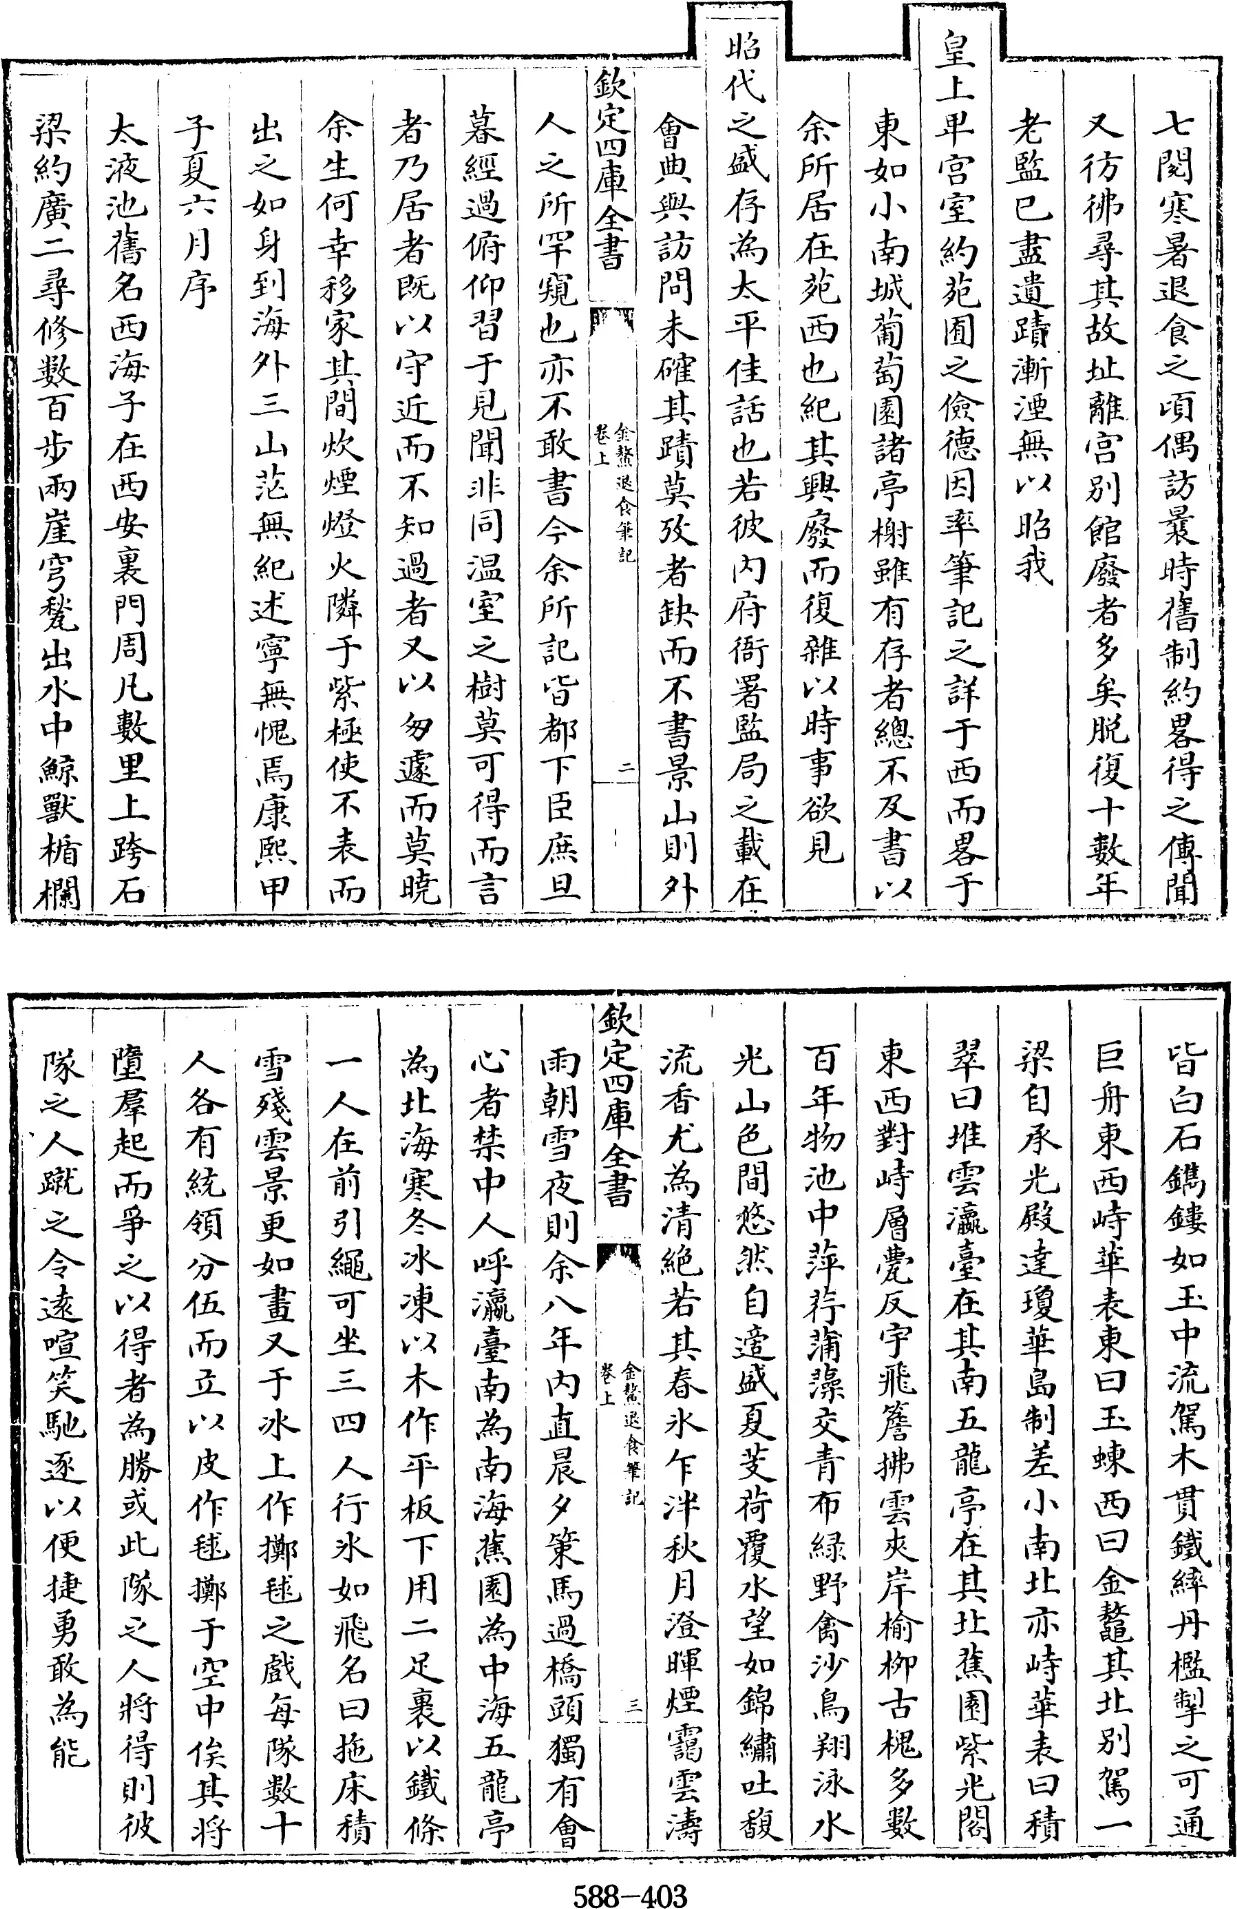 七閱寒暑退食之頃偶訪曩時舊制約畧得之傳聞
又彷彿尋其故址離宫别館廢者多矣脱復十數年
老監已盡遺蹟漸湮無以昭我
皇上卑宫室約苑囿之儉德因率筆記之詳于西而畧于
東如小南城葡萄園諸亭榭雖有存者總不及書以
余所居在苑西也紀其興廢而復雜以時事欲見
昭代之盛存為太平佳話也若彼内府衙署監局之載在
會典與訪問未確其蹟莫攷者缺而不書景山則外
欽定四庫全書
金鰲退食筆記
卷上
二
人之所罕窺也亦不敢書今余所記皆都下臣庶旦
暮經過俯仰習于見聞非同温室之樹莫可得而言
者乃居者既以守近而不知過者又以匆遽而莫曉
余生何幸移家其間炊煙燈火隣于紫極使不表而
出之如身到海外三山茫無紀述寧無愧焉康熙甲
子夏六月序
太液池舊名西海子在西安裏門周凡數里上跨石
梁約廣二尋修數百步兩崖穹甃出水中鯨獸楯欄
皆白石鐫鏤如玉中流駕木貫鐵繂丹檻掣之可通
巨舟東西峙華表東曰玉蝀西曰金鼇其北别駕一
梁自承光殿達瓊華島制差小南北亦峙華表曰積
翠曰堆雲瀛臺在其南五龍亭在其北蕉園紫光閣
東西對峙層甍反宇飛簷拂雲夾岸榆柳古槐多數
百年物池中萍荇蒲藻交青布緑野禽沙鳥翔泳水
光山色間悠然自適盛夏芰荷覆水望如錦繡吐馥
流香尤為清絶若其春氷乍泮秋月澄暉煙靄雲濤
欽定四庫全書
金鰲退食筆記
卷上
三
雨朝雪夜則余八年内直晨夕策馬過橋頭獨有會
心者禁中人呼瀛臺南為南海蕉園為中海五龍亭
為北海寒冬冰凍以木作平板下用二足裹以鐵條
一人在前引繩可坐三四人行氷如飛名曰拖床積
雪殘雲景更如畫又于冰上作擲毬之戲每隊數十
人各有統領分伍而立以皮作毬擲于空中俟其將
墮羣起而爭之以得者為勝或此隊之人將得則彼
隊之人蹴之令遠喧笑馳逐以便捷勇敢為能
588-403